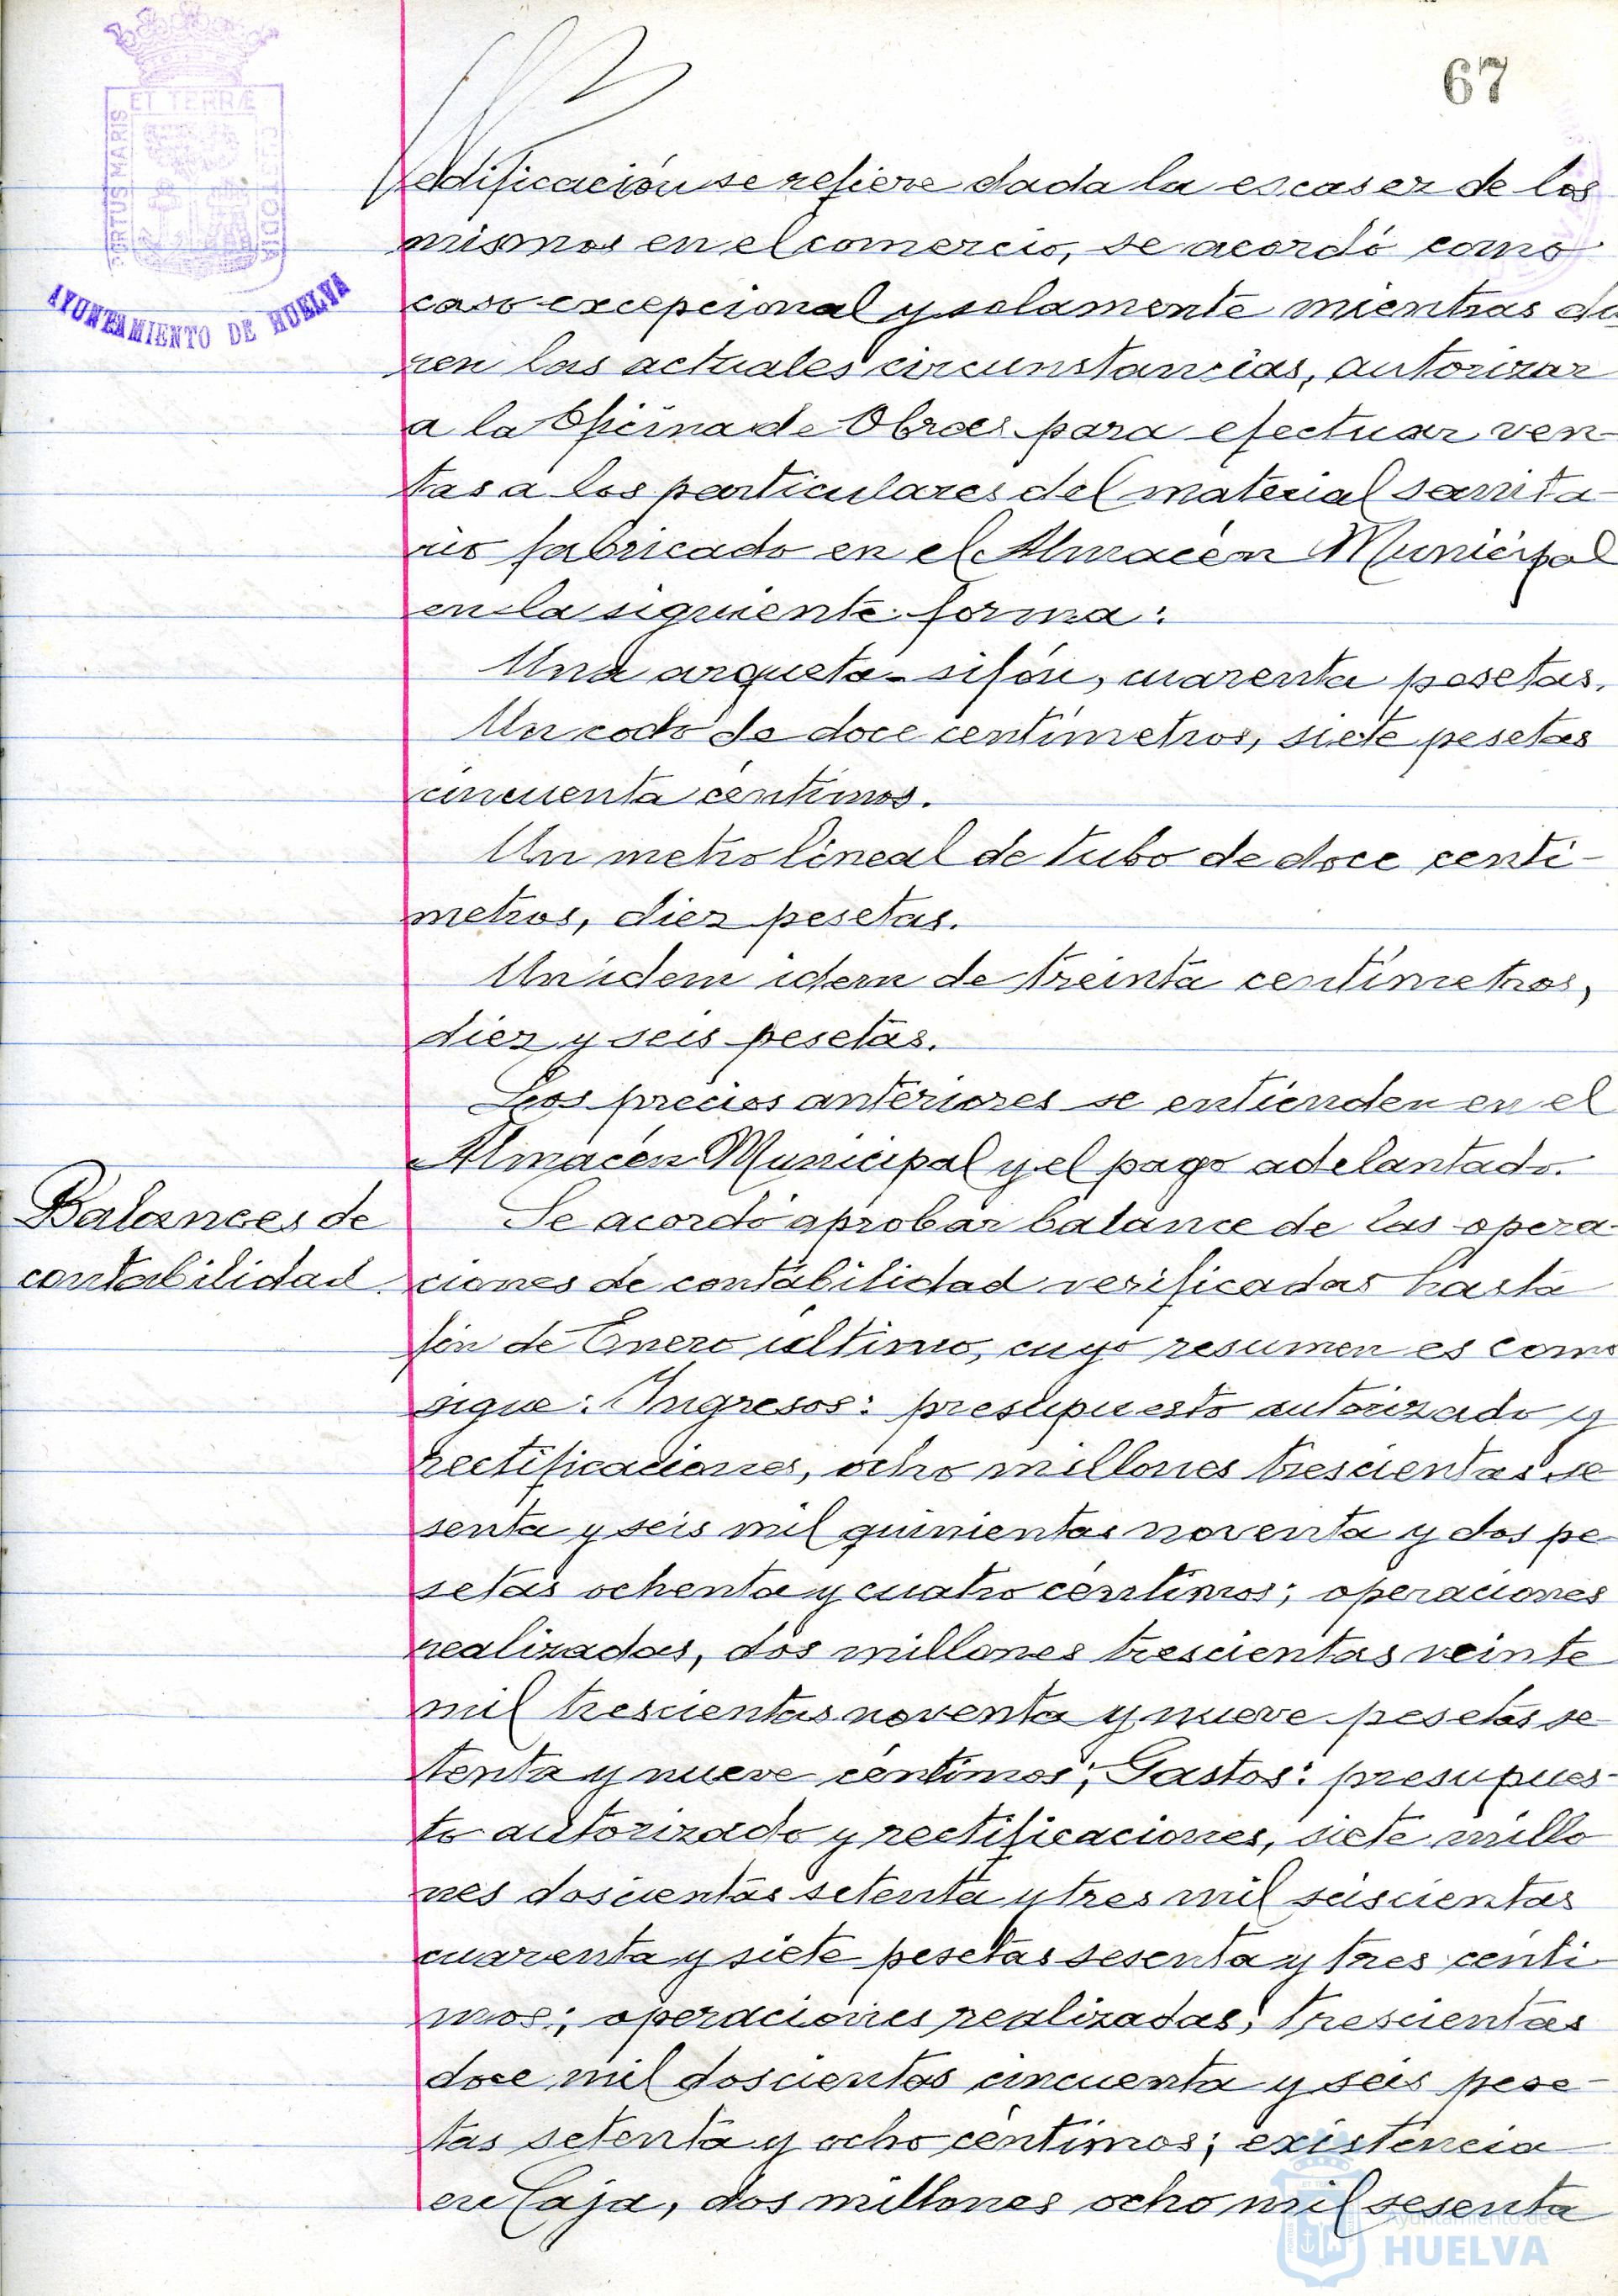 67
ET TERRÆ
PORTUS MARIS
CUSTODIA
AYUNTAMIENTO DE HUELVA
edificación se refiere dada la escasez de los
mismos en el comercio, se acordó como
caso excepcional y solamente mientras du
ren las actuales circunstancias, autorizar
a la Oficina de Obras para efectuar ven-
tas a los particulares del material sanita-
rio fabricado en el Almacén Municipal
en la siguiente forma:
Una arqueta-sifón, cuarenta pesetas.
Un codo de doce centímetros, siete pesetas
cincuenta céntimos.
Un metro lineal de tubo de doce centí-
metros, diez pesetas.
Un idem idem de treinta centímetros,
diez y seis pesetas.
Los precios anteriores se entienden en el
Almacén Municipal y el pago adelantado.
Balances de
contabilidad.
Se acordó aprobar balance de las opera-
ciones de contabilidad verificadas hasta
fin de Enero último, cuyo resumen es como
sigue: Ingresos: presupuesto autorizado y
rectificaciones, ocho millones trescientas se
senta y seis mil quinientas noventa y dos pe-
setas ochenta y cuatro céntimos; operaciones
realizadas, dos millones trescientas veinte
mil trescientas noventa y nueve pesetas se-
tenta y nueve céntimos; Gastos: presupues-
to autorizado y rectificaciones, siete millo
nes doscientas setenta y tres mil seiscientas
cuarenta y siete pesetas sesenta y tres cénti-
mos; operaciones realizadas, trescientas
doce mil doscientas cincuenta y seis pese-
tas setenta y ocho céntimos; existencia
en Caja, dos millones ocho mil sesenta
Ayuntamiento de
HUELVA